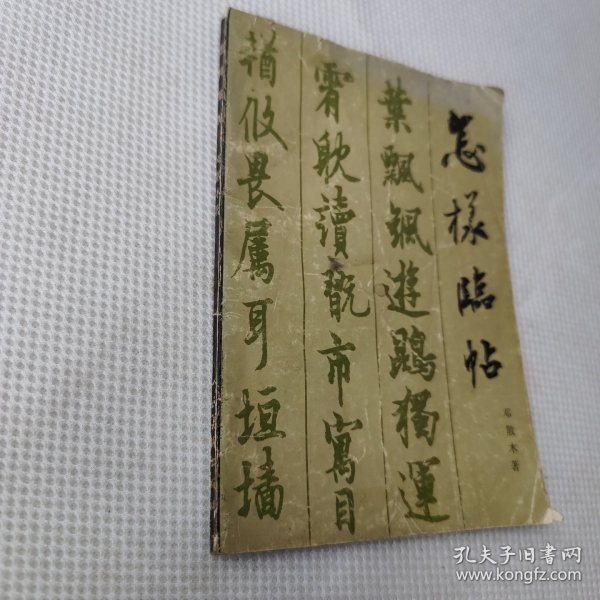 怎樣臨帖
邓散木著
葉飄颻遊鵾獨運
耽讀翫市寓目
攸畏屬耳垣墙
孔夫子旧書网
www.kongfz.com